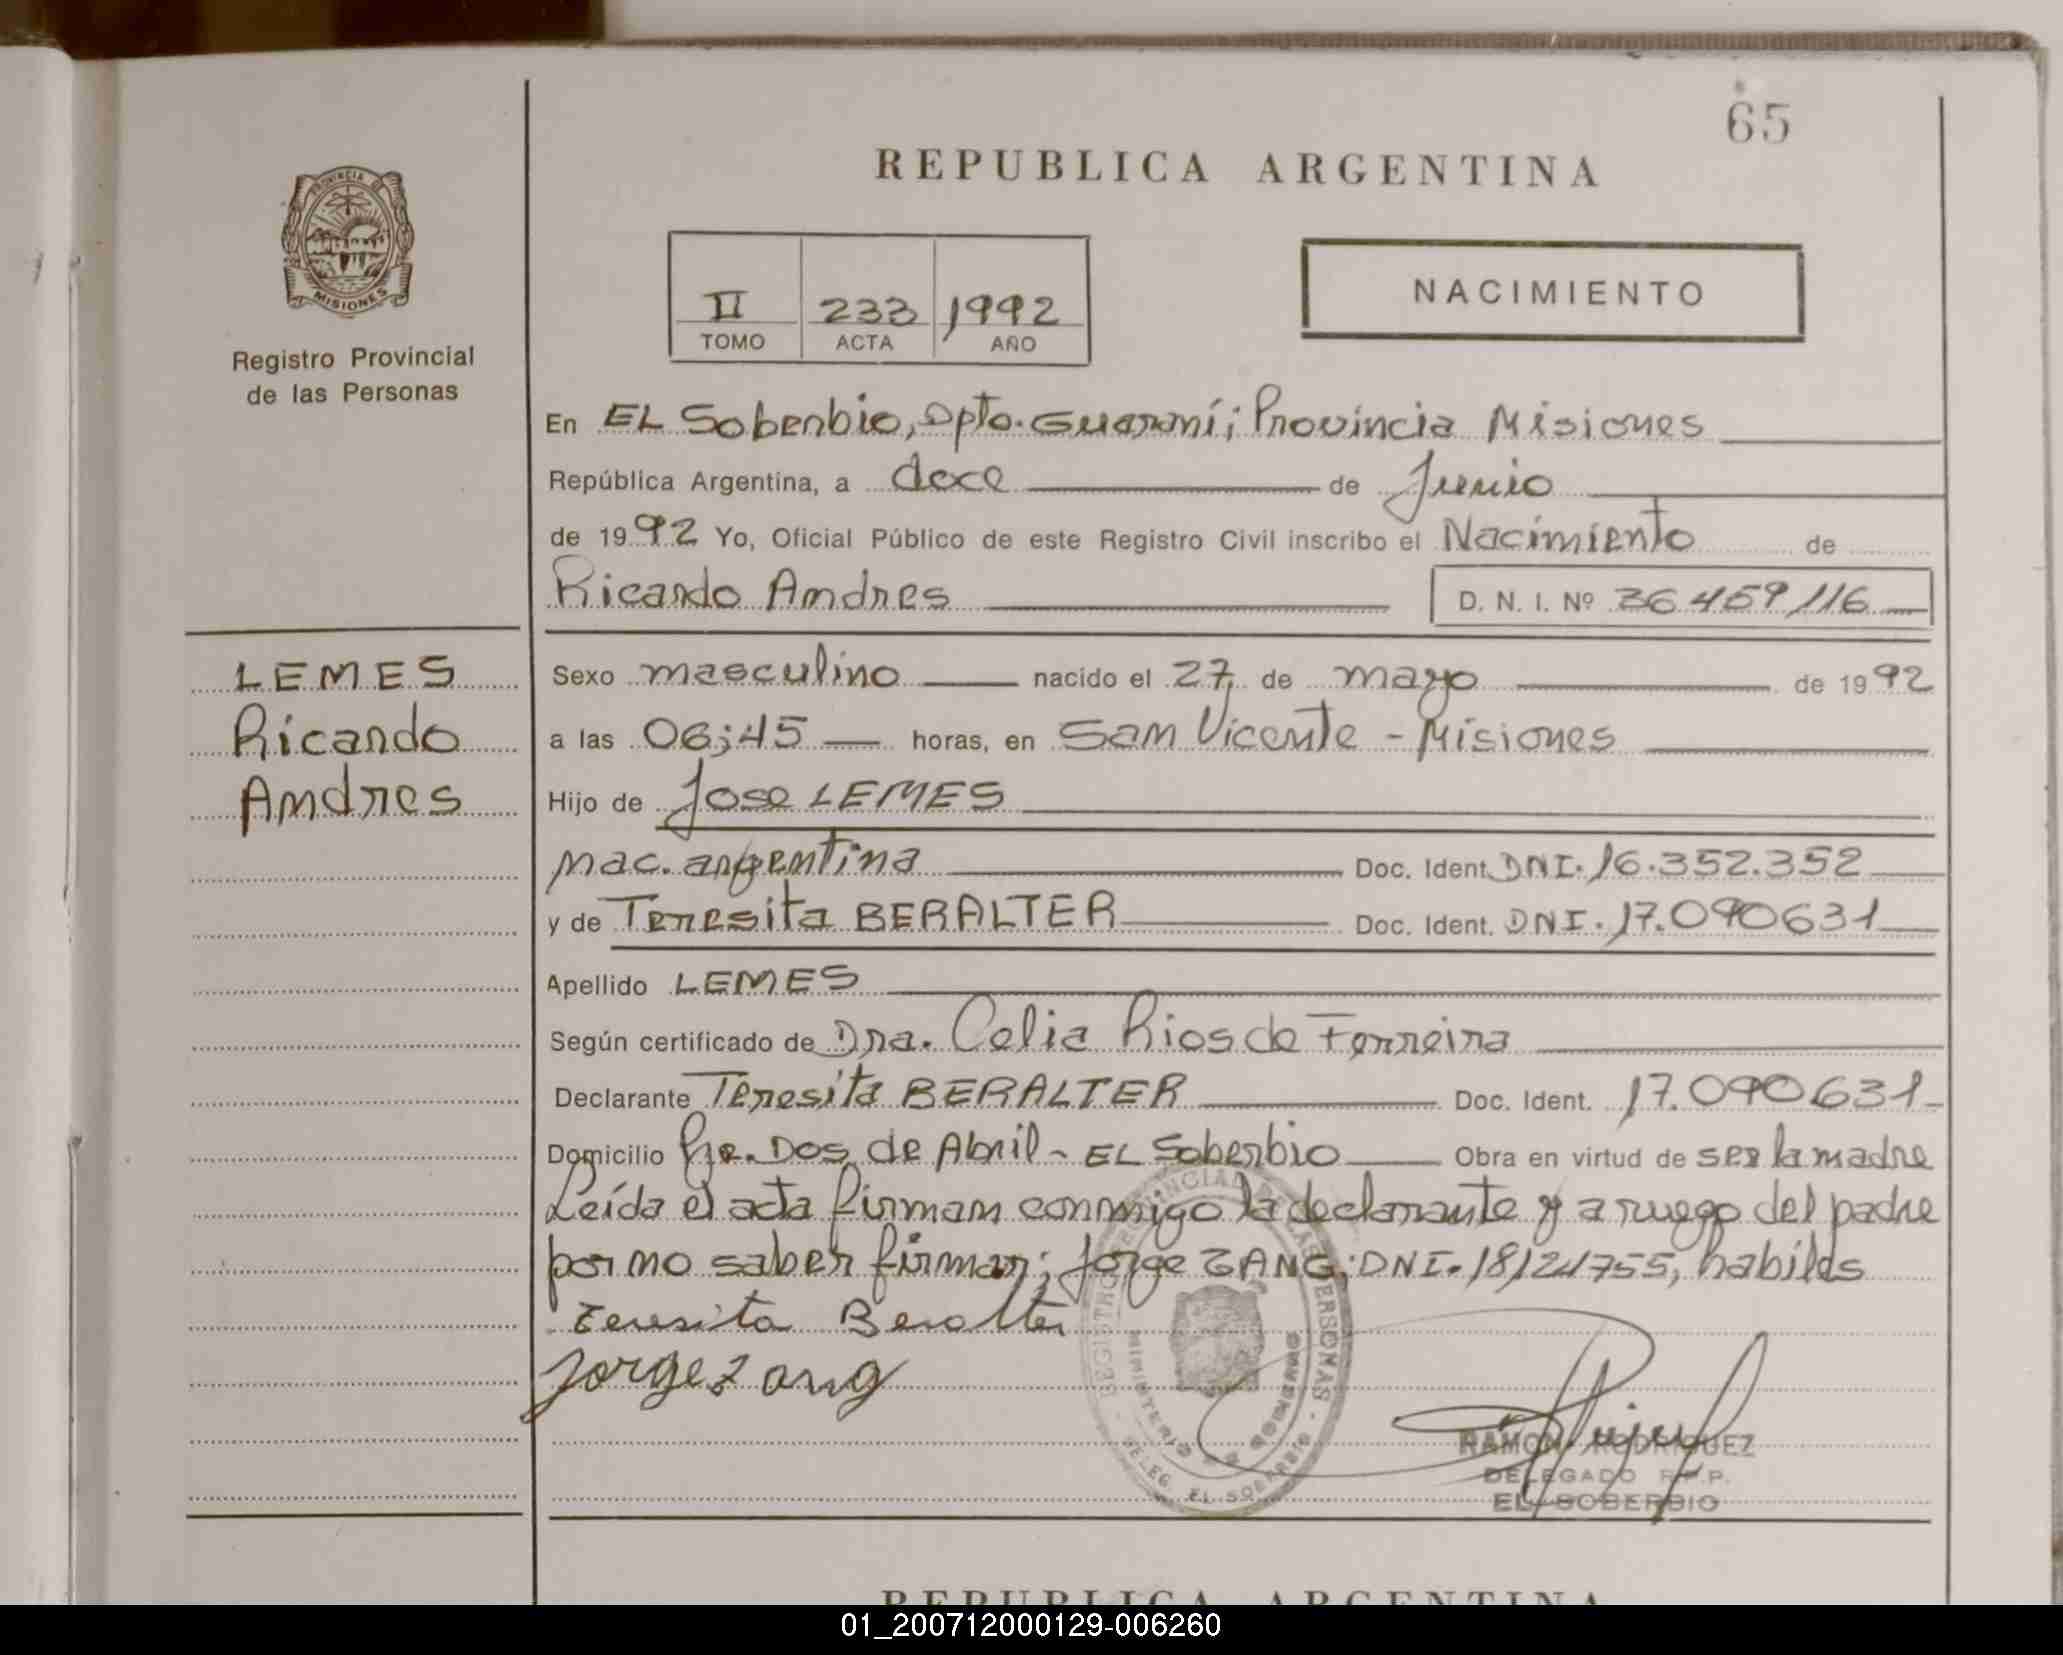 65
REPUBLICA ARGENTINA
PROVINCIA DE
MISIONES
Registro Provincial
de las Personas
II 233 1992
TOMO ACTA AÑO
NACIMIENTO
En EL Soberbio, Dpto. Guaraní; Provincia Misiones
República Argentina, a doce de Junio
de 1992 Yo, Oficial Público de este Registro Civil inscribo el Nacimiento de
Ricardo Andres D. N. I. Nº 36.459,116
LEMES
Ricardo
Andres
Sexo masculino nacido el 27, de mayo de 1992
a las 06;45 horas, en San Vicente - Misiones
Hijo de Jose LEMES
nac. argentina Doc. Ident. DNI. 16.352.352
y de Teresita BERALTER Doc. Ident. DNI. 17.090631
Apellido LEMES
Según certificado de Dra. Celia Rios de Ferreira
Declarante Teresita BERALTER Doc. Ident. 17.090631
Domicilio Pje. Dos de Abril - EL Soberbio Obra en virtud de ser la madre
Leída el acta firman conmigo la declarante y a ruego del padre
por no saber firmar; Jorge ZANG; DNI. 18121755, habiles
Teresita Beralter
Jorge Zang
REGISTRO PROVINCIAL DE LAS PERSONAS
MINISTERIO DE GOBIERNO
DELEG. EL SOBERBIO
RAMON RODRIGUEZ
DELEGADO R.P.P.
EL SOBERBIO
REPUBLICA ARGENTINA
01_200712000129-006260